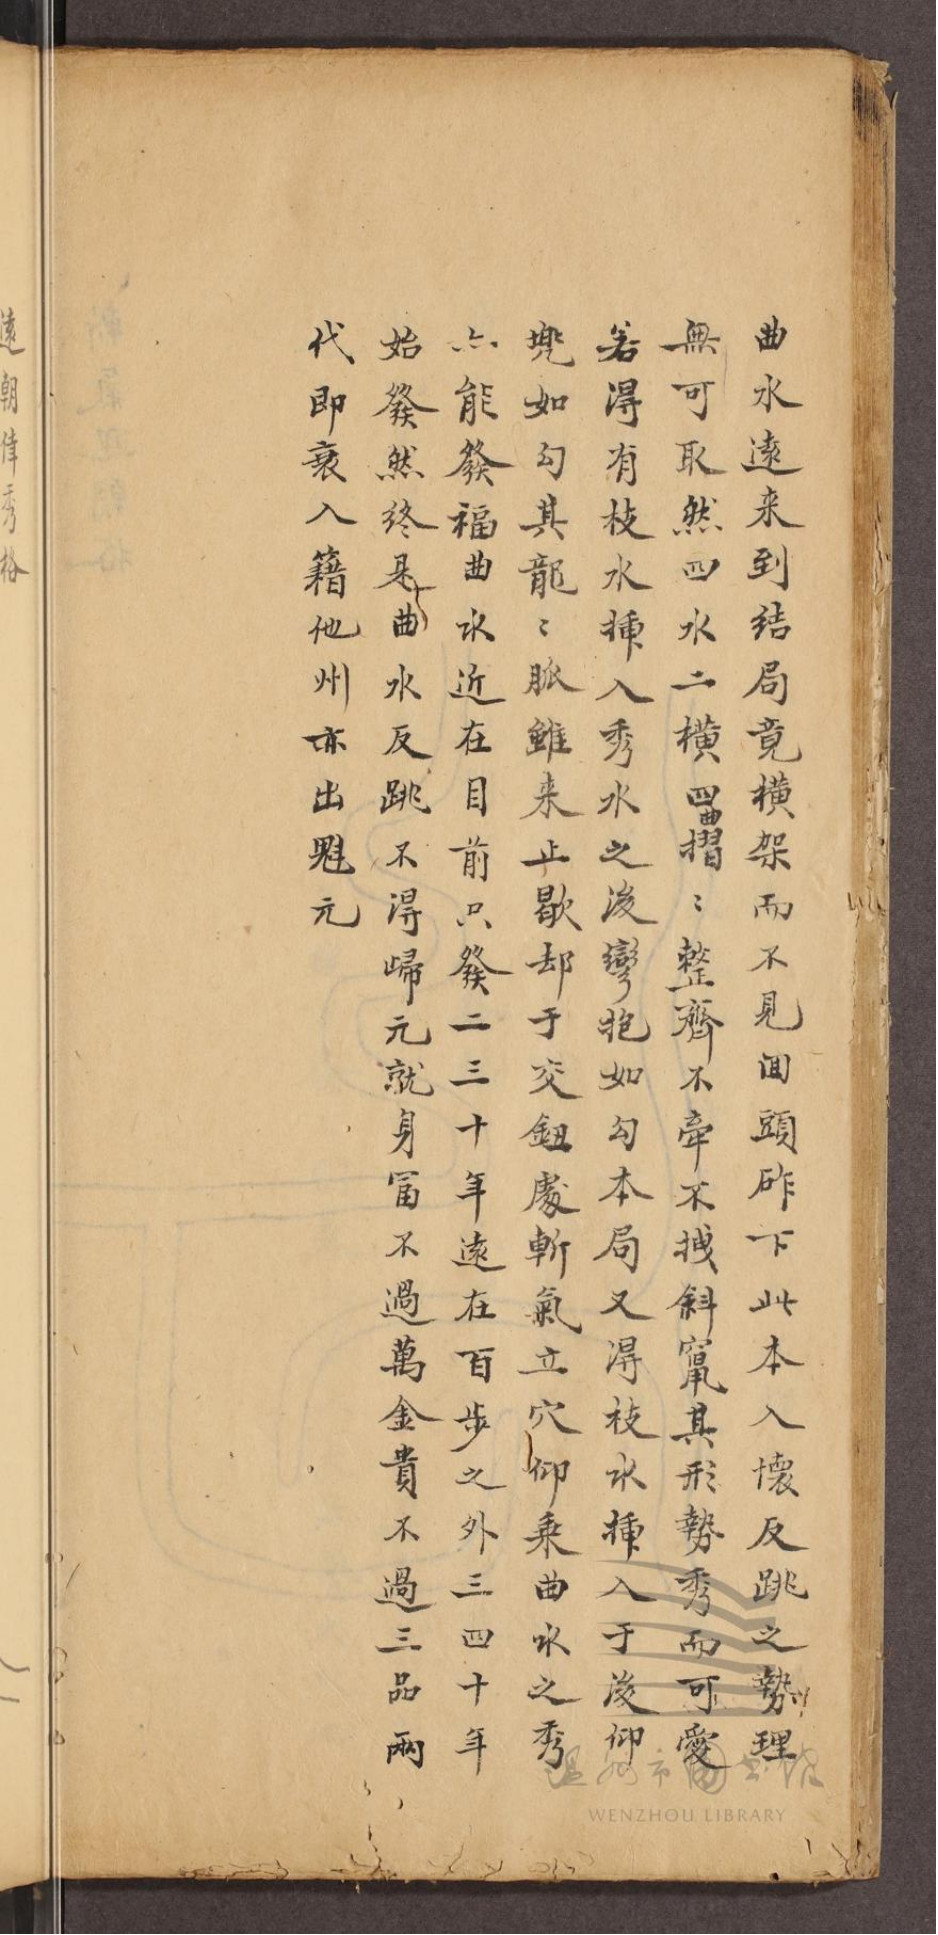 曲水遠来到结局竟横架而不見回頭砟下此本入懷反跳之勢理
無可取然四水二横四曲摺〻整齊不牽不拽斜竄其形勢秀而可愛
若得有枝水揷入秀水之後彎抱如勾本局又得枝水揷入于後仰
兠如勾其龍〻脈雖来止歇却于交鈕處斬氣立穴仰乗曲水之秀
亦能發福曲水近在目前只發二三十年遠在百步之外三四十年
始發然终是曲水反跳不得歸元就身冨不過萬金貴不過三品兩
代即衰入籍他州亦出魁元
遠朝侔秀格
温州市圖书馆
WENZHOU LIBRARY